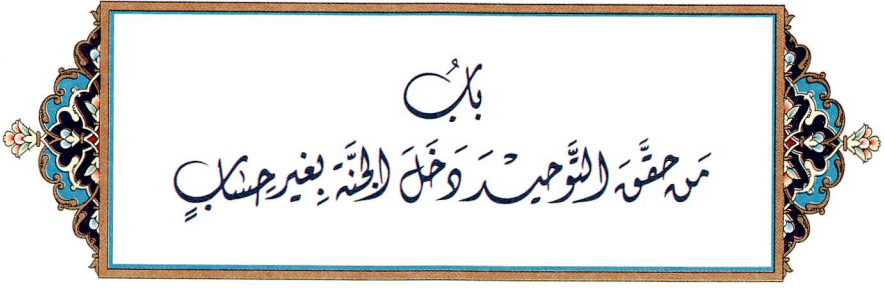 بابُ
مَن حقَّقَ التَّوحيْدَ دَخَلَ الجنَّةَ بِغيرِ حِسَابٍ